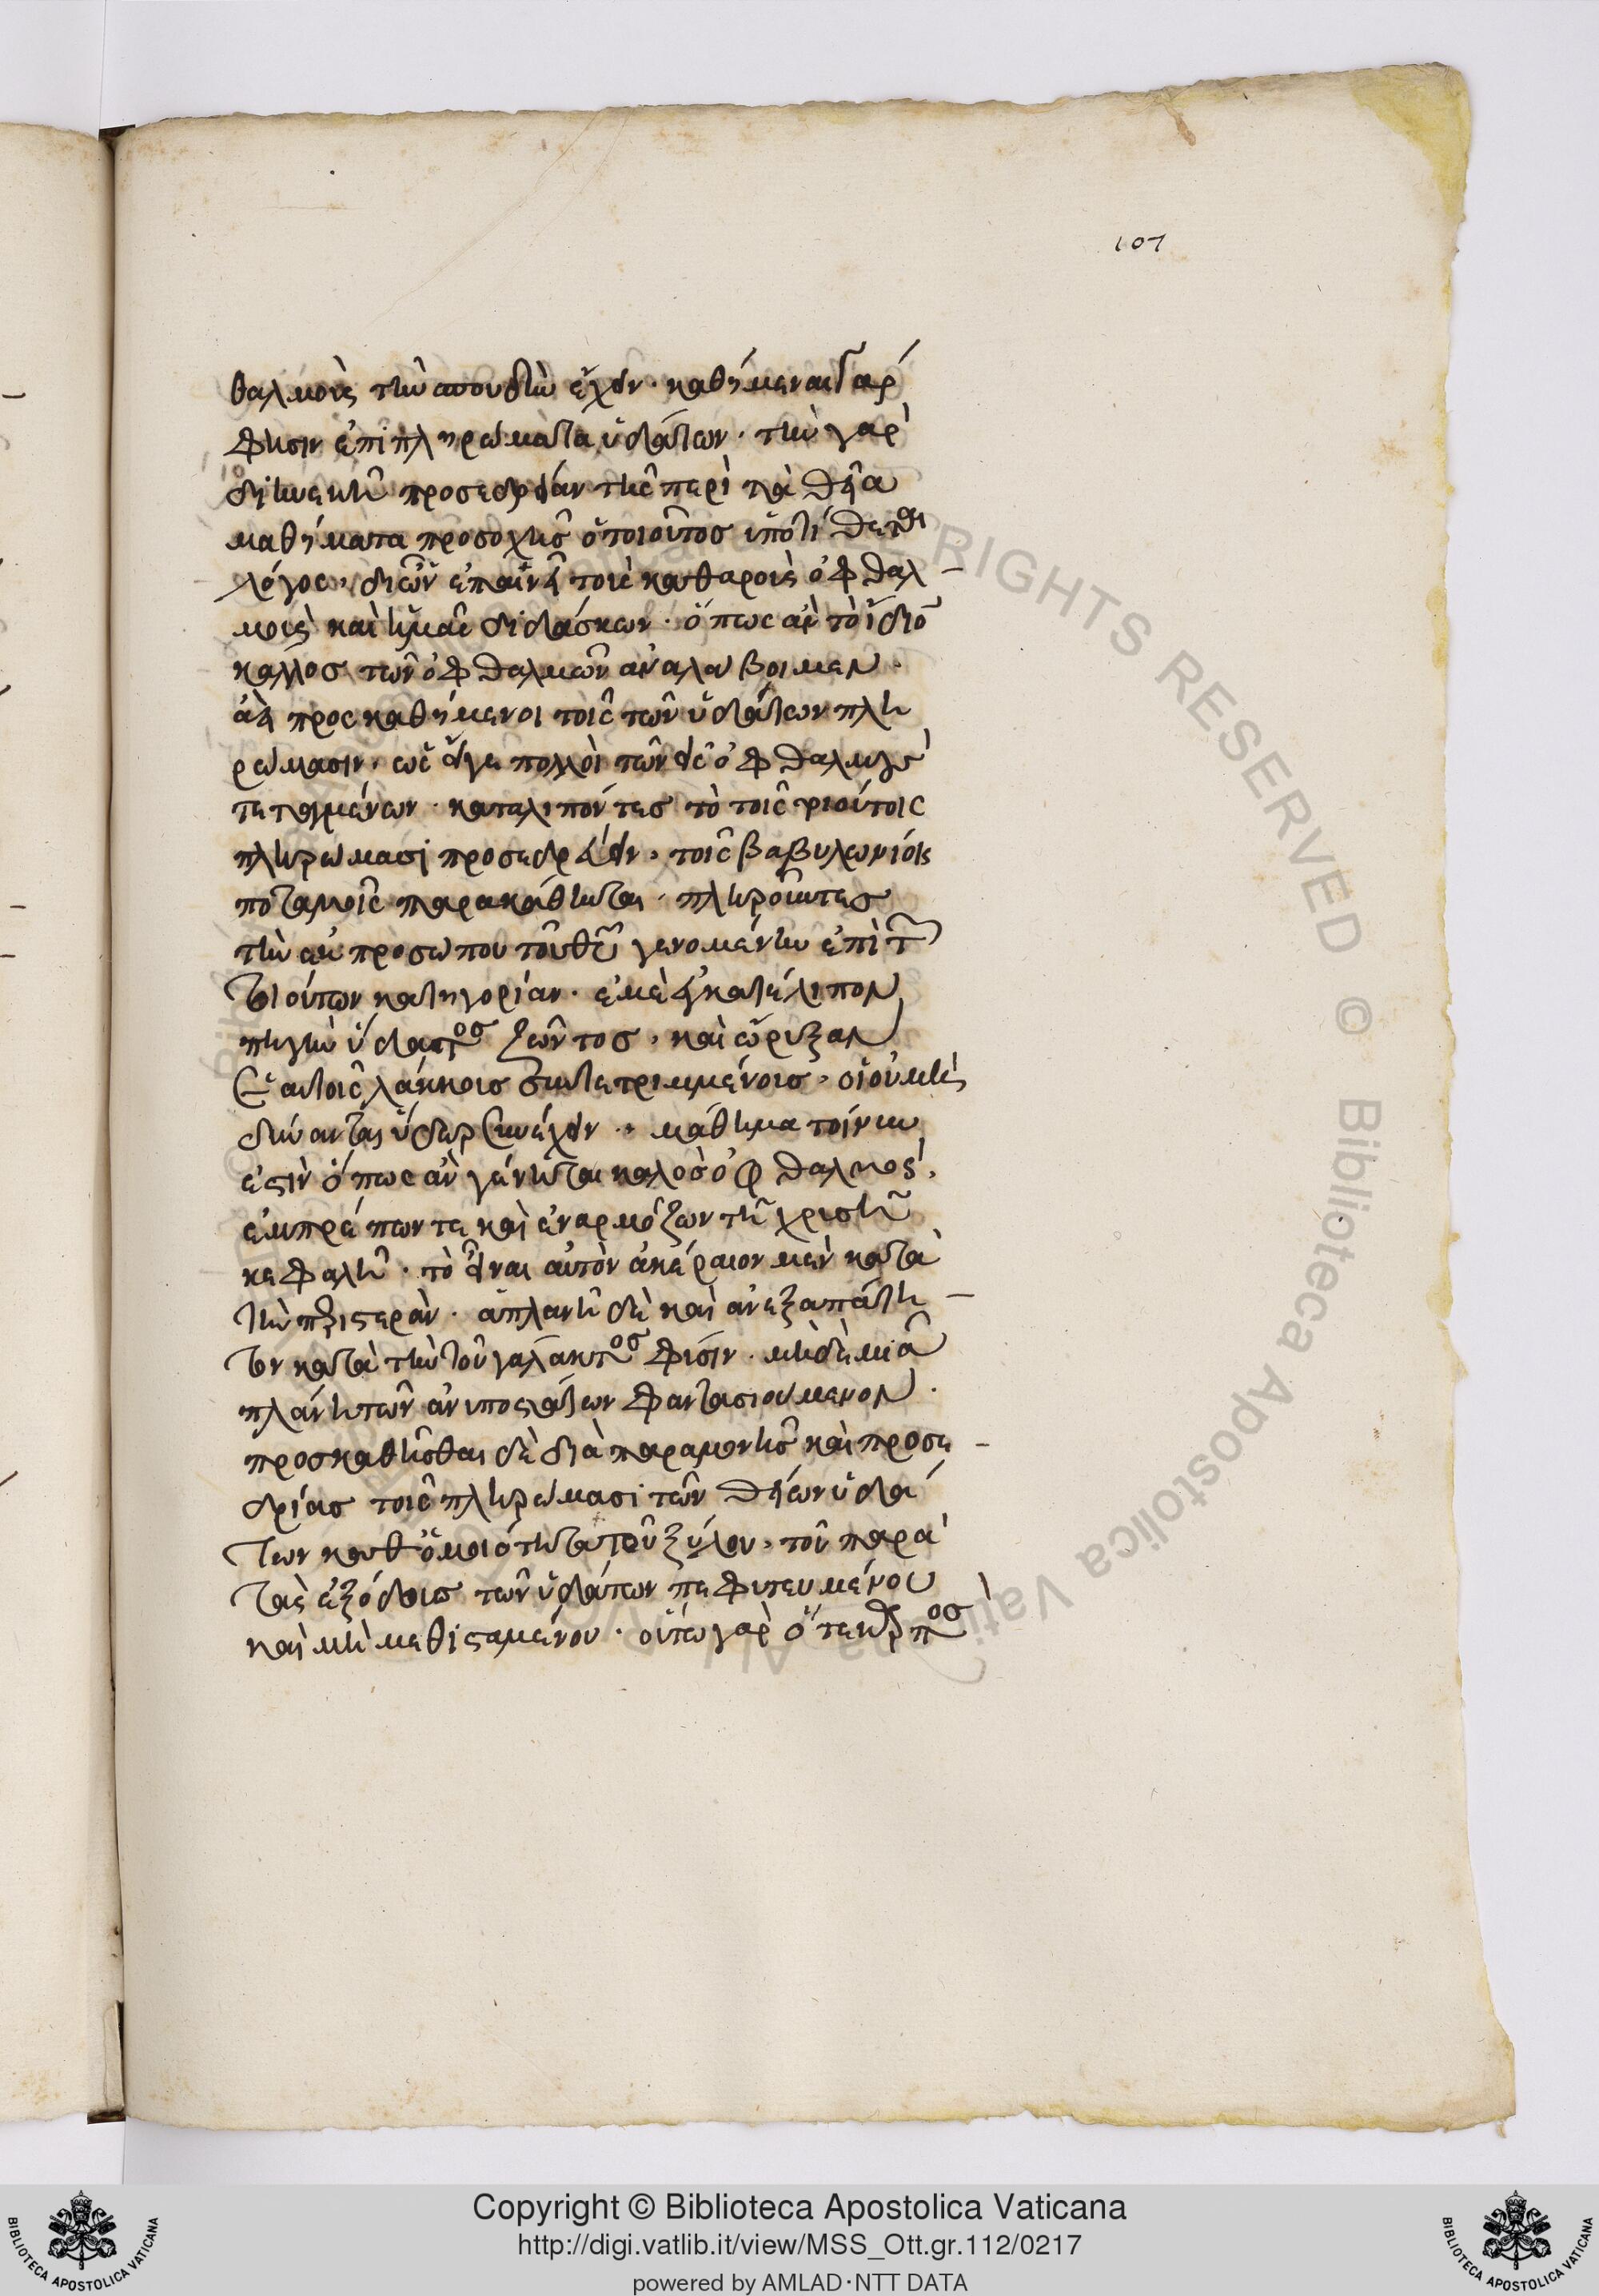 107
θαλμοὺς τὴν σπουδὴν ἔχειν· καθήμεναι γάρ
φησιν ἐπὶ πληρώματα ὑδάτων· τὴν γὰρ
διηνεκῆ προσεδρείαν τῆς περὶ τὰ θεῖα
μαθήματα προσοχῆς ὁ τοιοῦτος ὑποτίθεται
λόγος, δι' ὧν ἐπαινεῖ τοὺς καθαροὺς ὀφθαλ-
μοὺς καὶ ἡμᾶς διδάσκων· ὅπως ἂν τὸ ἴδιον
κάλλος τῶν ὀφθαλμῶν ἀναλάβοιμεν·
ἀεὶ προσκαθήμενοι τοῖς τῶν ὑδάτων πλη
ρώμασιν, ὡς εἴγε πολλοὶ τῶν εἰς ὀφθαλμοὺς
τεταγμένων· καταλιπόντες τὸ τοῖς τοιούτοις
πληρώμασι προσεδρεύειν, τοῖς βαβυλωνίοις
ποταμοῖς παρακάθηνται, πληροῦντες
τὴν ἐκ προσώπου τοῦ θεοῦ γενομένην ἐπὶ τῶν
τοιούτων κατηγορίαν· ἐμὲ ἐγκατέλιπον
πηγὴν ὕδατος ζῶντος, καὶ ὤρυξαν
ἑαυτοῖς λάκκους συντετριμμένους, οἳ οὐ μὴ
δύνανται ὕδωρ συνέχειν· μάθημα τοίνυν
ἐστὶν ὅπως ἂν γένηται καλὸς ὀφθαλμός,
ἐμπρέπων τε καὶ ἐναρμόζων τῇ χρυσῇ
κεφαλῇ· τὸ εἶναι αὐτὸν ἀκέραιον μὲν κατὰ
τὴν περιστεράν· ἀπλανῆ δὲ καὶ ἀνεξαπάτη-
τον κατὰ τὴν τοῦ γάλακτος φύσιν· μηδεμιᾷ
πλάνῃ τῶν ἀνυποστάτων φαντασιούμενον·
προσκαθῆσθαι δὲ διὰ παραμονῆς καὶ προσε-
δρίας τοῖς πληρώμασι τῶν θείων ὑδά
των καθ' ὁμοιότητα τοῦ ξύλου, τοῦ παρὰ
τὰς ἐξόδους τῶν ὑδάτων πεφυτευμένου
καὶ μὴ μεθισταμένου· οὕτω γὰρ ὅ τε καρπὸς
Copyright © Biblioteca Apostolica Vaticana
http://digi.vatlib.it/view/MSS_Ott.gr.112/0217
powered by AMLAD·NTT DATA